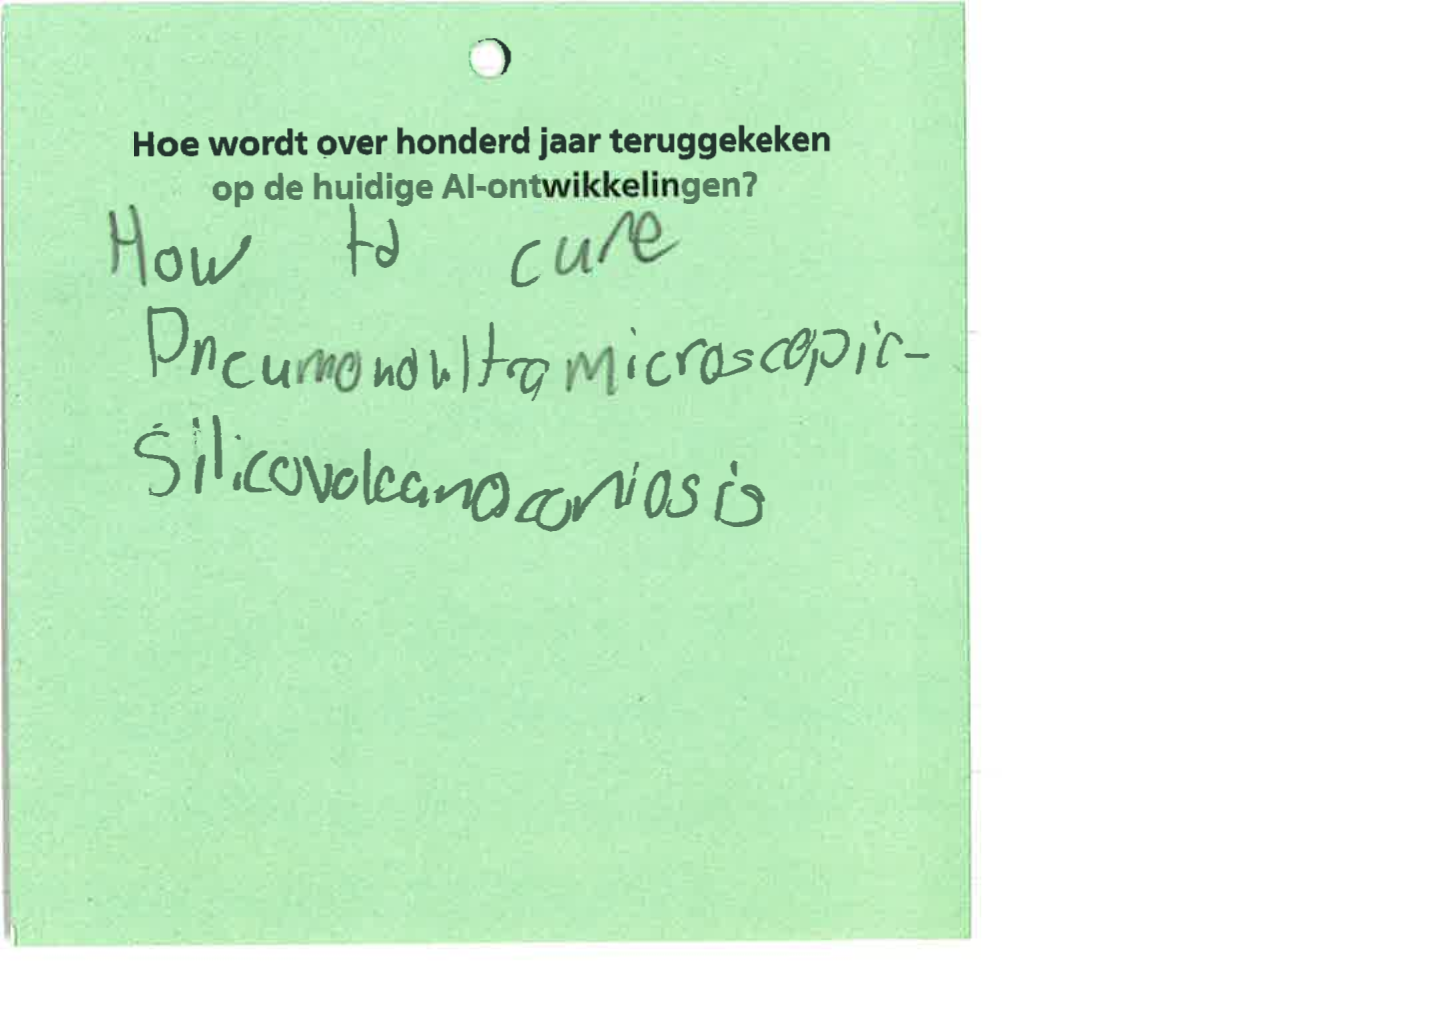 Hoe wordt over honderd jaar teruggekeken
op de huidige AI-ontwikkelingen?
How to cure
Pneumonoultramicroscopic-
Silicovolcanoconiosis